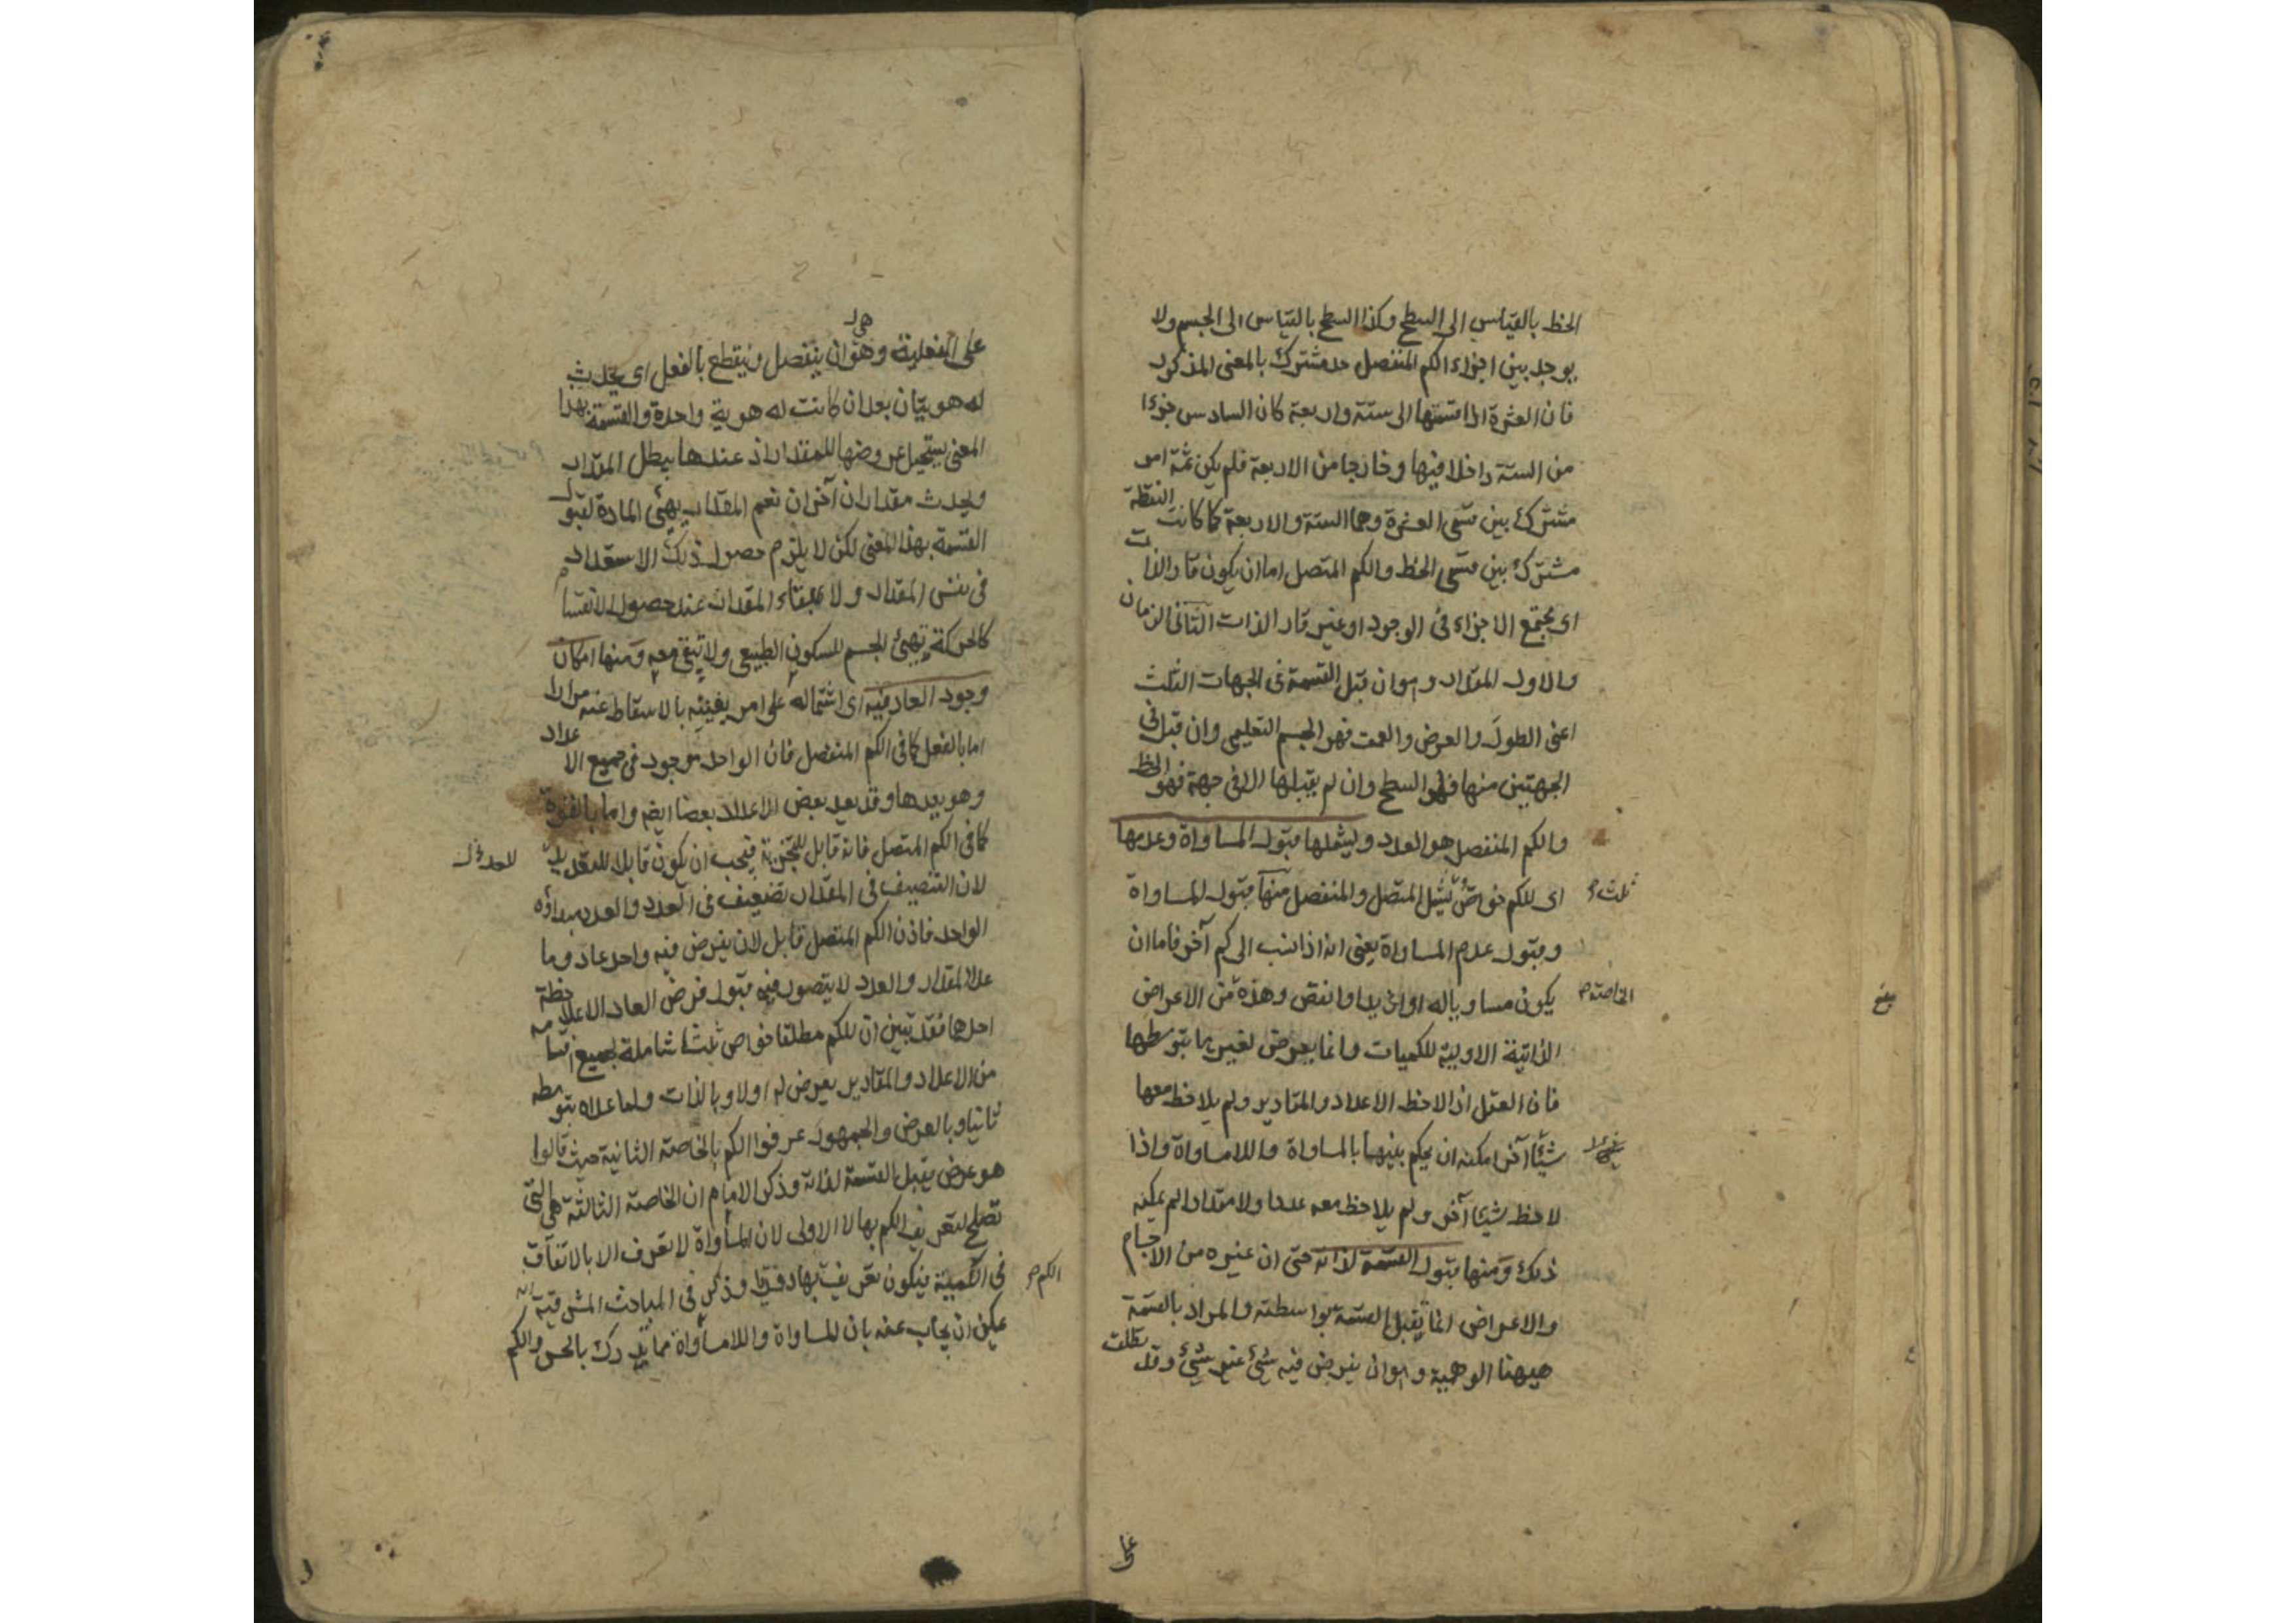 الخط بالقياس الى السطح وكذا السطح بالقياس الى الجسم ولا
يوجد بين اجزاء الكم المنفصل حد مشترك بالمعنى المذكور
فان العشرة اذا قسمتها الى ستة واربعة كان السادس جزءا
من الستة داخلا فيها وخارجا من الاربعة فلم يكن ثمة امر
مشترك بين قسمى العشرة وهما الستة والاربعة كما كانت النقطة
مشتركة بين قسمى الخط والكم المتصل اما ان يكون قار الذات
اى مجتمع الاجزاء فى الوجود او غير قار الذات الثانى الزمان
والاول المقدار وهو ان قبل القسمة فى الجهات الثلث
اعنى الطول والعرض والعمق فهو الجسم التعليمى وان قبل فى
الجهتين منها فهو السطح وان لم يقبلها الا فى جهة فهو الخط
والكم المنفصل هو العدد ويشملها قبول المساواة وعدمها
اى للكم خواص تشمل المتصل والمنفصل منها قبول المساواة
ثلث
وقبول عدم المساواة يعنى انه اذا نسب الى كم آخر فاما ان
يكون مساويا له او ازيد او انقص وهذه من الاعراض
الخاصة
الذاتية الاولية للكميات وانما يعرض لغيرها بتوسطها
فان العقل اذا لاحظ الاعداد والمقادير ولم يلاحظ معها
شيئا آخر امكنه ان يحكم بينهما بالمساواة واللامساواة واذا
لاحظ شيئا آخر ولم يلاحظ معه عددا ولا مقدارا لم يمكنه
ذلك ومنها قبول القسمة لذاته حتى ان غيره من الاجسام
والاعراض انما يقبل القسمة بواسطته والمراد بالقسمة
هيهنا الوهمية وهو ان يفرض فيه شئ غير شئ وقد يطلق
على
هى
على الفعلية وهو ان ينفصل وينقطع بالفعل اى يحدث
له هويتان بعد ان كانت له هوية واحدة والقسمة بهذا
المعنى يستحيل عروضها للمقدار اذ عندها يبطل المقدار
ويحدث مقداران آخران نعم المقدار يهيئ المادة لقبول
القسمة بهذا المعنى لكن لا يلزم حصول ذلك الاستعداد
فى نفس المقدار ولا بقاء المقدار عند حصول الانقسام
كالحركة تهيئ الجسم للسكون الطبيعى ولا تبقى معه ومنها امكان
وجود العاد فيه اى اشتماله على امر يفنيه بالاسقاط عنه مرارا
اما بالفعل كما فى الكم المنفصل فان الواحد موجود فى جميع الاعداد
وهو يعدها وقد يعد بعض الاعداد بعضا ايضا واما بالقوة
كما فى الكم المتصل فانه قابل للتجزية فيجب ان يكون قابلا للتعديد
لان التنصيف فى المقدار تضعيف فى العدد والعدد مبدأوه
الواحد فاذن الكم المتصل قابل لان يفرض فيه واحد عاد وما
عدا المقدار والعدد لا يتصور فيه قبول فرض العاد الا بملاحظة
احدهما فقد تبين ان للكم مطلقا خواص ثلثا شاملة لجميع اقسامه
من الاعداد والمقادير يعرض له اولا وبالذات ولما عداه بتوسطه
ثانيا وبالعرض والجمهور عرفوا الكم بالخاصة الثانية حيث قالوا
هو عرض يقبل القسمة لذاته وذكر الامام ان الخاصة الثالثة هى التى
تصلح لتعريف الكم بها لا الاولى لان المساواة لا تعرف الا بالاتفاق
فى الكمية فيكون تعريف بها دوريا وذكر فى المباحث المشرقية انه
الكم
يمكن ان يجاب عنه بان المساواة واللامساواة مما يدرك بالحس والكم